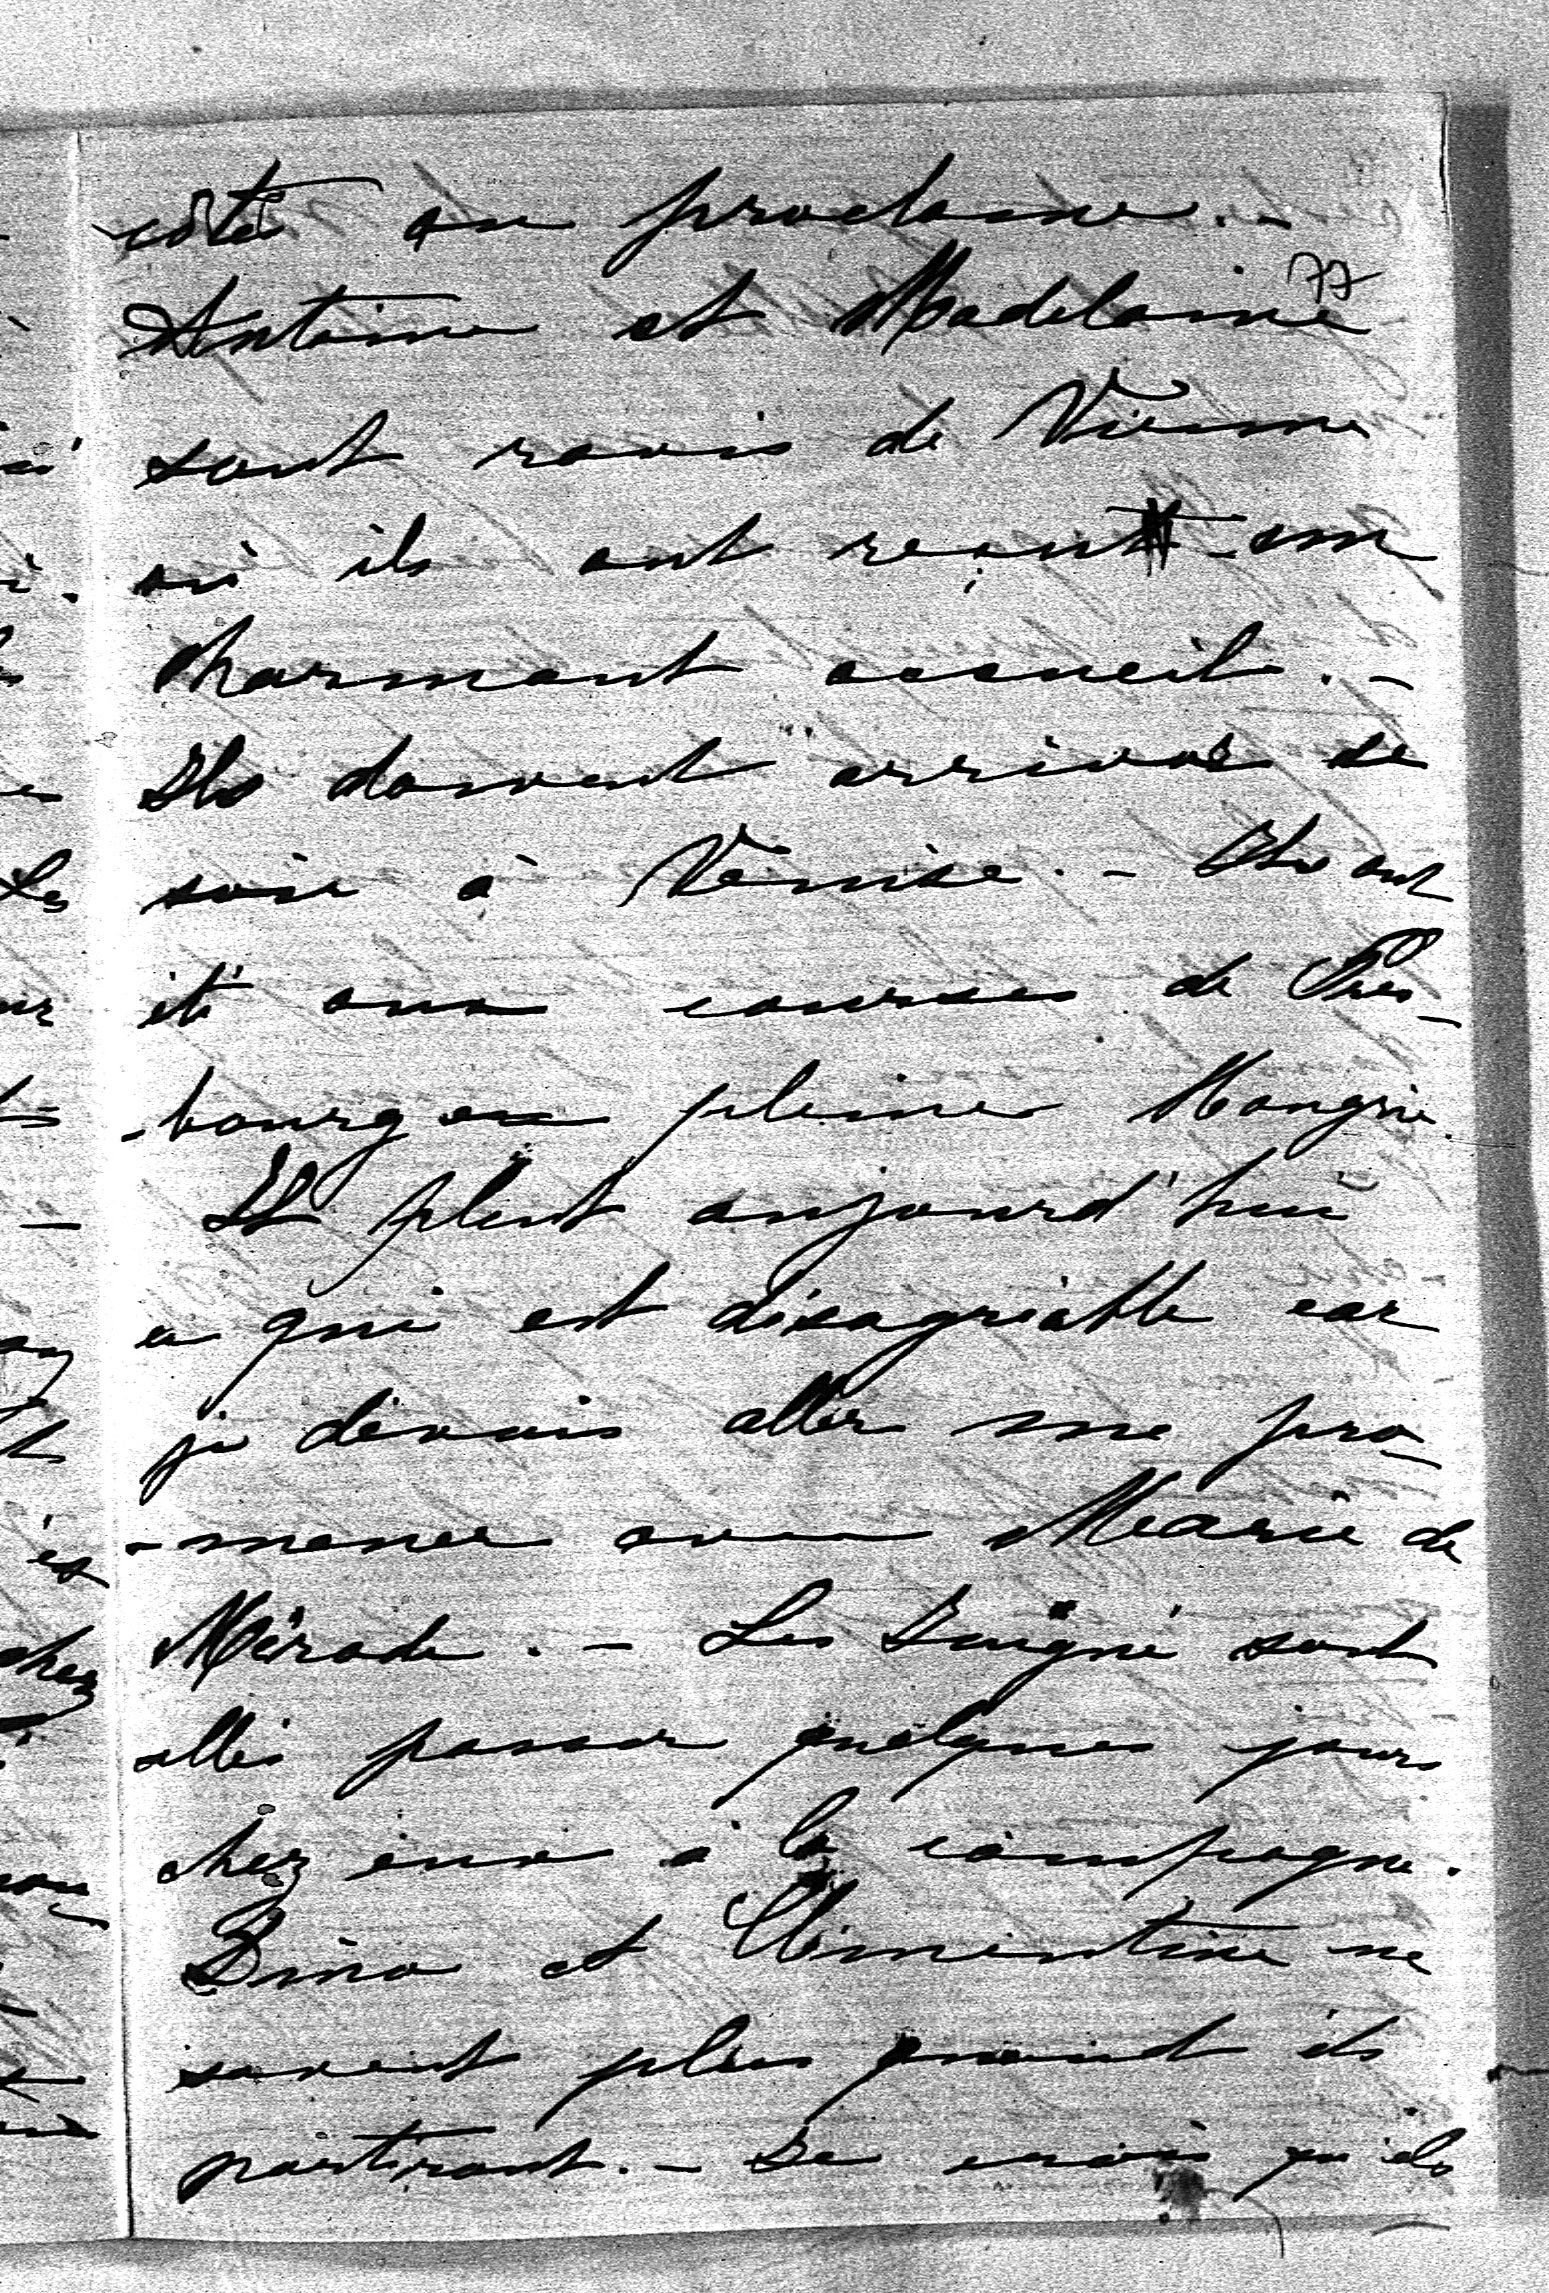 côté on proclame. -
77
Antoine et Madelaine
sont ravis de Vienne
où ils ont reçu un
charmant accueil. -
Ils doivent arriver ce
soir à Vénise. - Ils ont
été aux courses de Pres-
-bourg en pleine Hongrie.
Il pleut aujourd'hui
ce qui est désagréable car
je devais aller me pro-
-mener avec Marie de
Mérode. - Les sont
allés passer quelques jours
chez eux à la campagne.
et Clémentine ne
savent plus quand ils
partiront. - Je crois qu'ils